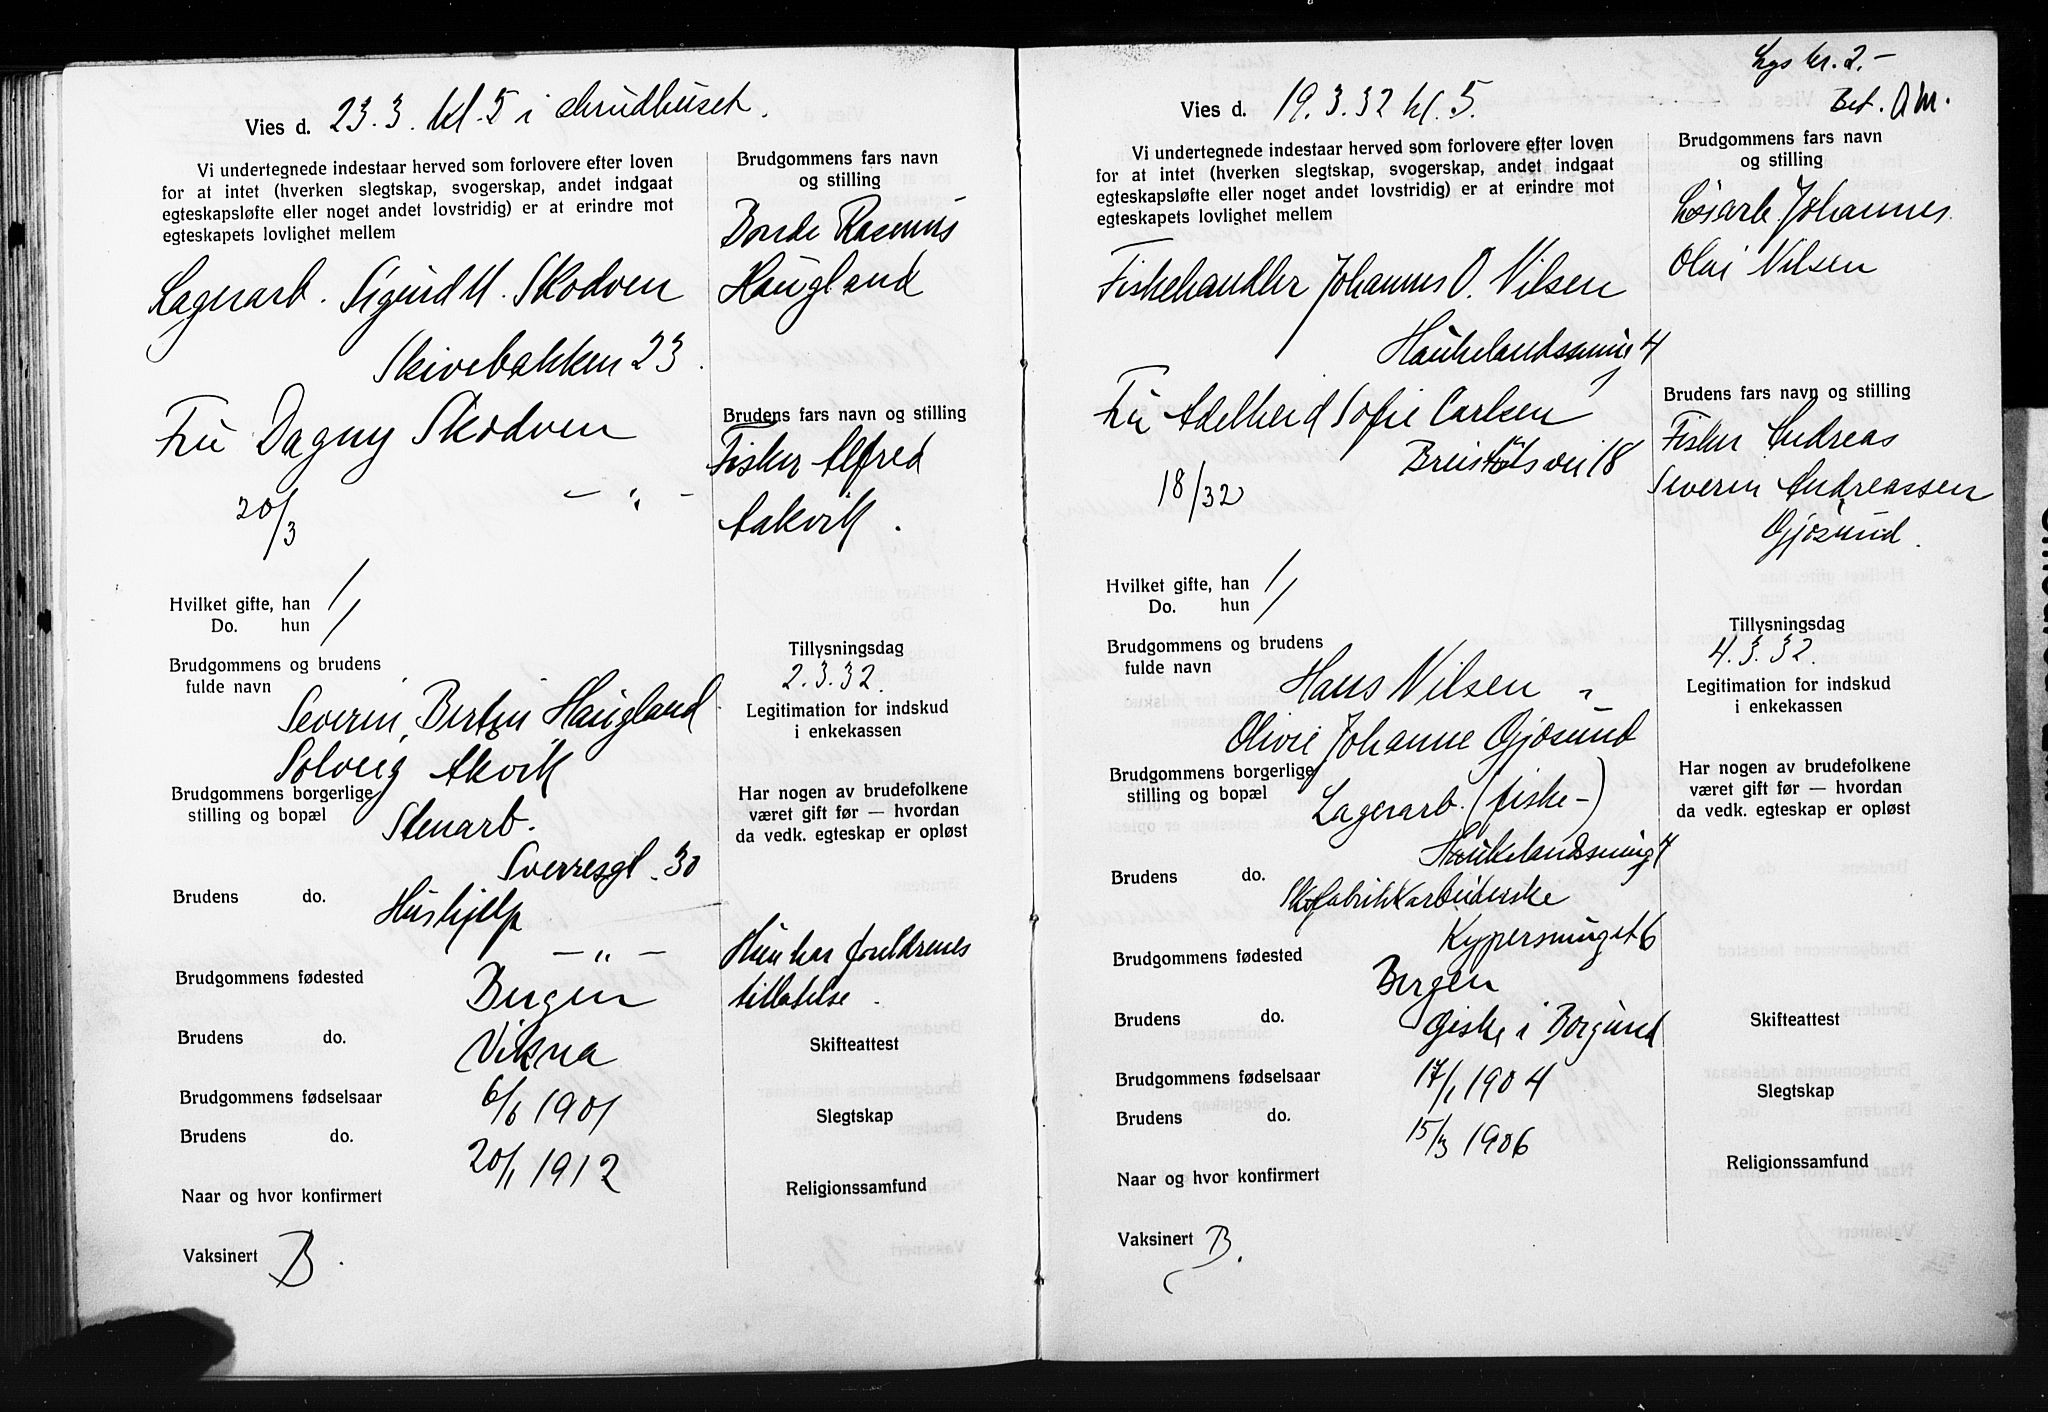 Vies d. 23.3. kl. 5 i skrudhuset.
Vi undertegnede indestaar herved som forlovere efter loven
for at intet (hverken slegtskap, svogerskap, andet indgaat
egteskapsløfte eller noget andet lovstridig) er at erindre mot
egteskapets lovlighet mellem
Lagerarb. Sigurd M. Skodven
Skivebakken 23.
Fru Dagny Skodven
20/3 — „ —
Hvilket gifte, han 1/
Do. hun 1/
Brudgommens og brudens
fulde navn
Severin, Bertin Haugland
Solveig Akvik
Brudgommens borgerlige
stilling og bopæl
Stenarb.
Sverresgt. 30
Brudens do.
Hushjelp
— „ —
Brudgommens fødested
Bergen
Brudens do.
Vikna
Brudgommens fødselsaar 6/6 1901
Brudens do.
20/1 1912
Naar og hvor konfirmert
Vaksinert B.
Brudgommens fars navn
og stilling
Bonde Rasmus
Haugland
Brudens fars navn og stilling
Fisker Alfred
Aakvik.
Tillysningsdag
2.3.32.
Legitimation for indskud
i enkekassen
Har nogen av brudefolkene
været gift før — hvordan
da vedk. egteskap er opløst
Hun har foreldrenes
tillatelse.
Skifteattest
Slegtskap
Religionssamfund
Lys kr. 2.-
Bet. A M.
Vies d. 19.3.32 kl. 5.
Vi undertegnede indestaar herved som forlovere efter loven
for at intet (hverken slegtskap, svogerskap, andet indgaat
egteskapsløfte eller noget andet lovstridig) er at erindre mot
egteskapets lovlighet mellem
Fiskehandler Johannes O. Nilsen
Haukelandssving 4
Fru Adelheid Sofie Carlsen
Breistølsvei 18
18/32
Hvilket gifte, han 1/
Do. hun 1/
Brudgommens og brudens
fulde navn
Hans Nilsen
Olivie Johanne Gjøsund
Brudgommens borgerlige
stilling og bopæl
Lagerarb. (fiske-)
Haukelandssving 4
Brudens do.
Skofabrikkarbeiderske
Kypersminget 6
Brudgommens fødested
Bergen
Brudens do.
Giske i Borgund
Brudgommens fødselsaar 17/1 1904
Brudens do.
15/3 1906
Naar og hvor konfirmert
Vaksinert B.
Brudgommens fars navn
og stilling
Løsarb. Johannes
Olai Nilsen
Brudens fars navn og stilling
Fisker Andreas
Severin Andreassen
Gjøsund.
Tillysningsdag
4.3.32.
Legitimation for indskud
i enkekassen
Har nogen av brudefolkene
været gift før — hvordan
da vedk. egteskap er opløst
Skifteattest
Slegtskap
Religionssamfund